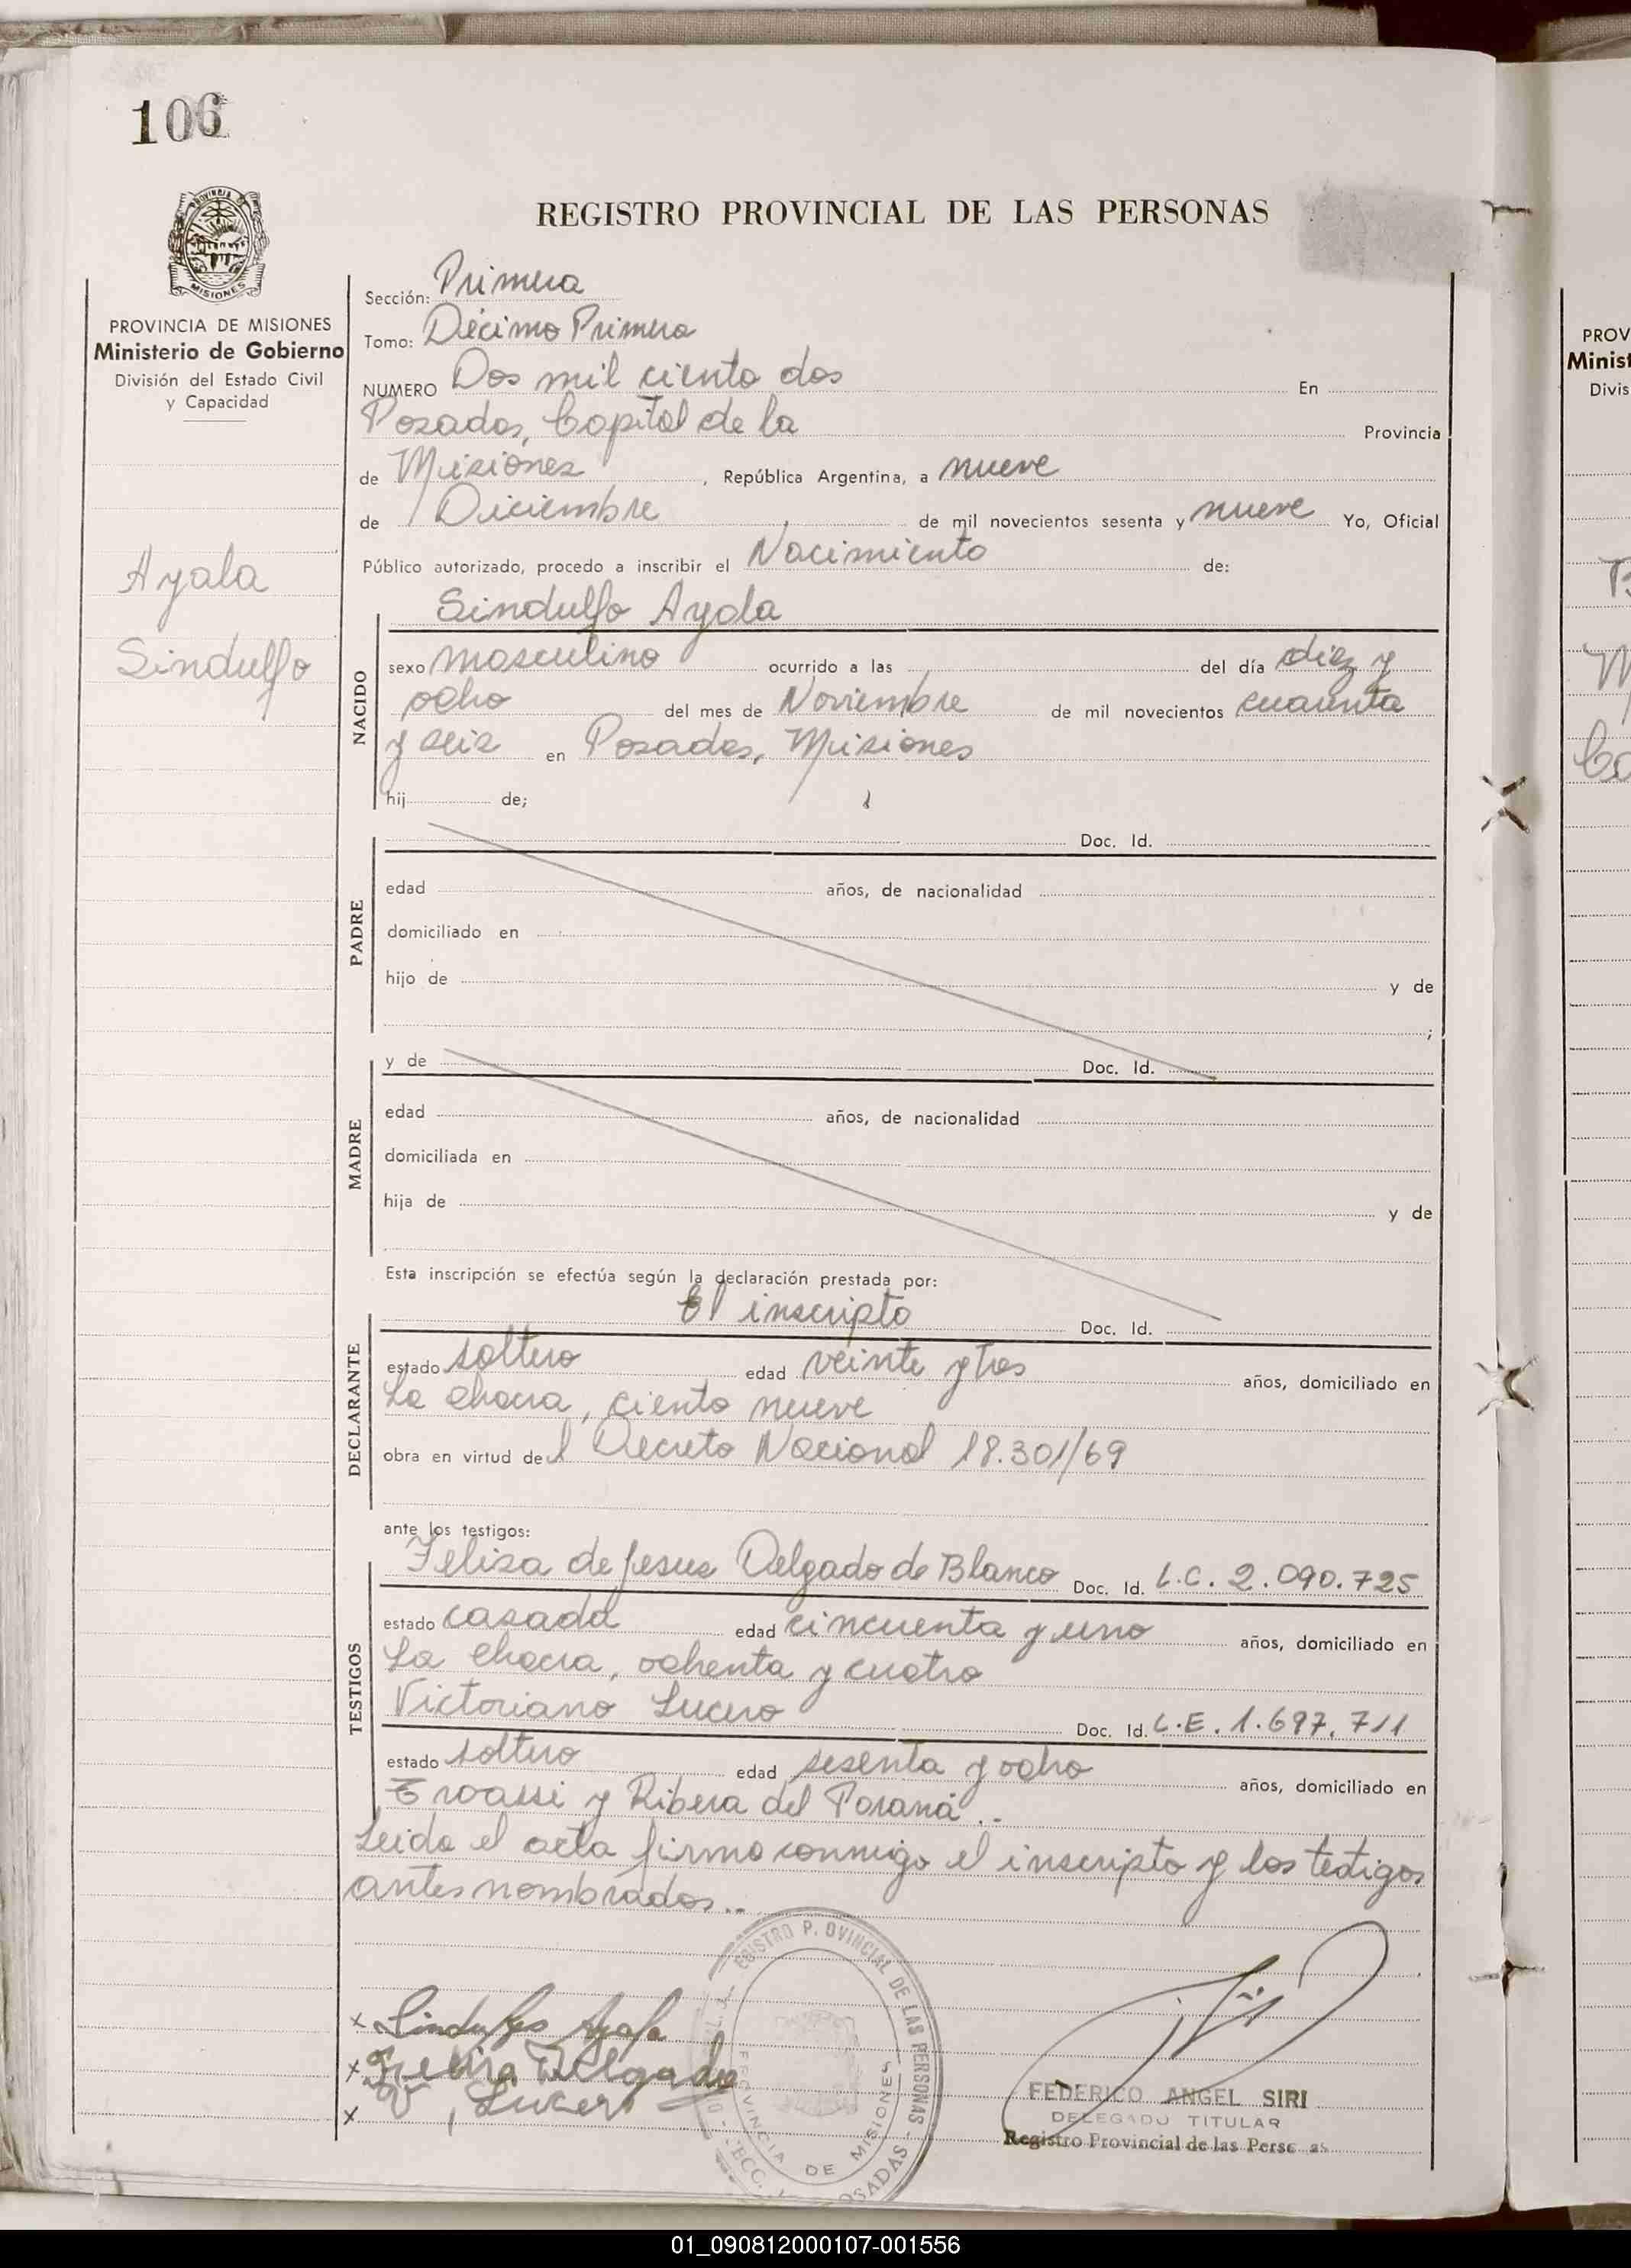 106
REGISTRO PROVINCIAL DE LAS PERSONAS
PROVINCIA DE MISIONES
Ministerio de Gobierno
División del Estado Civil
y Capacidad
Ayala
Sindulfo
Sección: Primera
Tomo: Décimo Primero
NUMERO Dos mil ciento dos En
Posadas, Capital de la Provincia
de Misiones, República Argentina, a nueve
de Diciembre de mil novecientos sesenta y nueve Yo, Oficial
Público autorizado, procedo a inscribir el Nacimiento de:
Sindulfo Ayala
NACIDO
sexo masculino ocurrido a las del día diez y
ocho del mes de Noviembre de mil novecientos cuarenta
y seis en Posadas, Misiones
hij de;
PADRE
Doc. Id.
edad años, de nacionalidad
domiciliado en
hijo de y de
;
MADRE
y de Doc. Id.
edad años, de nacionalidad
domiciliada en
hija de y de
Esta inscripción se efectúa según la declaración prestada por:
DECLARANTE
El inscripto Doc. Id.
estado soltero edad veinte y tres años, domiciliado en
La Chacra, ciento nueve
obra en virtud del Decreto Nacional 18.301/69
ante los testigos:
TESTIGOS
Felisa de Jesus Delgado de Blanco Doc. Id. L.C. 2.090.725
estado casada edad cincuenta y uno años, domiciliado en
La Chacra, ochenta y cuatro
Victoriano Lucero Doc. Id. L.E. 1.697.711
estado soltero edad sesenta y ocho años, domiciliado en
y Ribera del Paraná..
Leida el acta firmo conmigo el inscripto y los testigos
antes nombrados..
x Sindulfo Ayala
x Felisa Delgado
x V. Lucero
PROVINCIA DE MISIONES
FEDERICO ANGEL SIRI
DELEGADO TITULAR
Registro Provincial de las Perso as
PROV
Minist
Divis
01_090812000107-001556